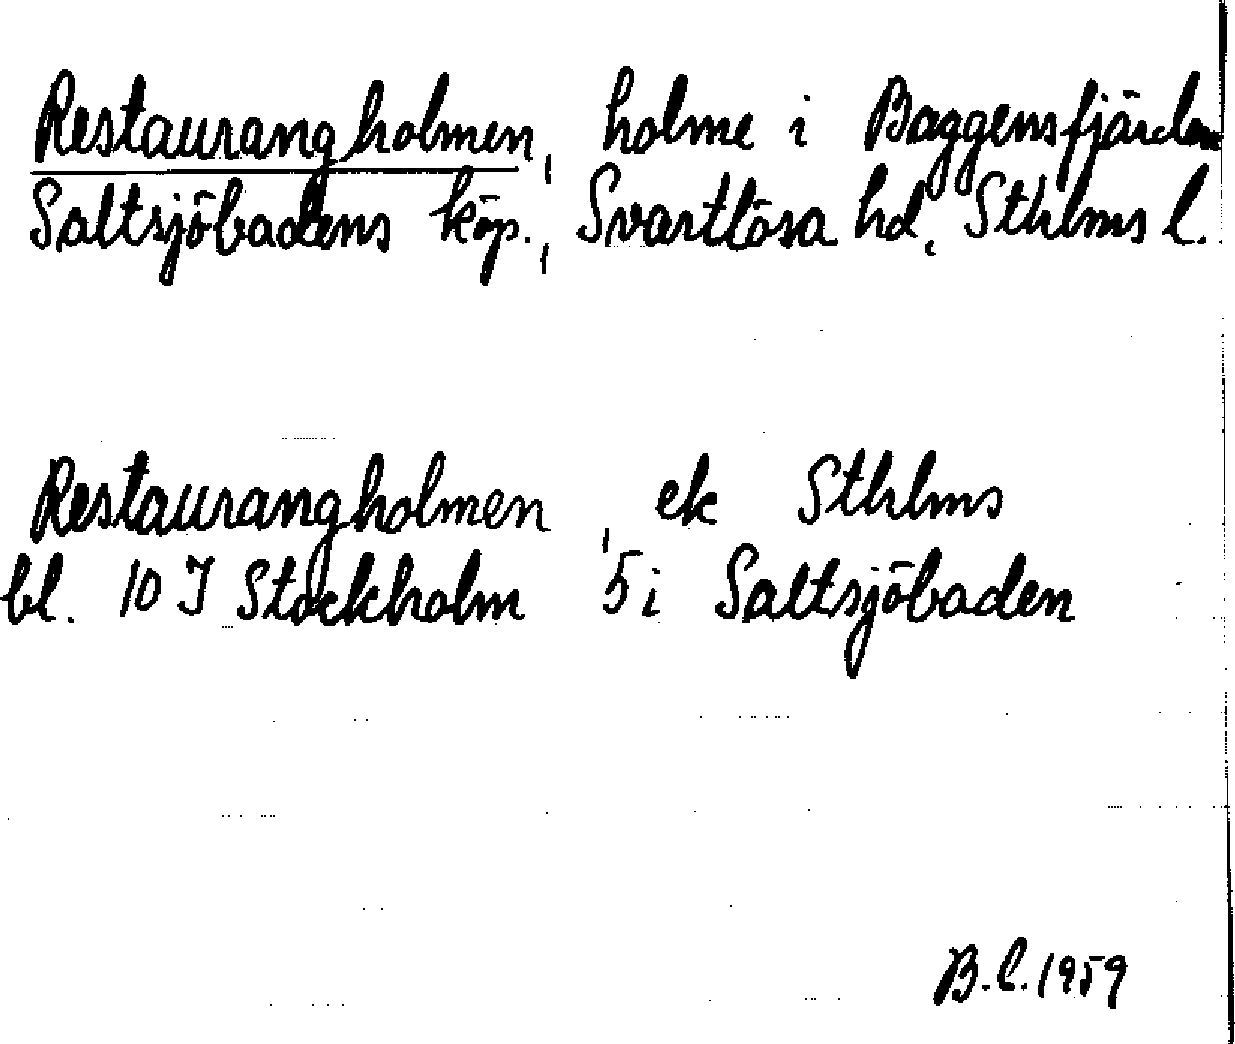 Restaurangholmen, holme i Baggensfjärden
Saltsjöbadens köp., Svartlösa hd, Sthlms l.
Restaurangholmen, ek Sthlms
bl. 10 I Stockholm 5 i Saltsjöbaden
B.L. 1959